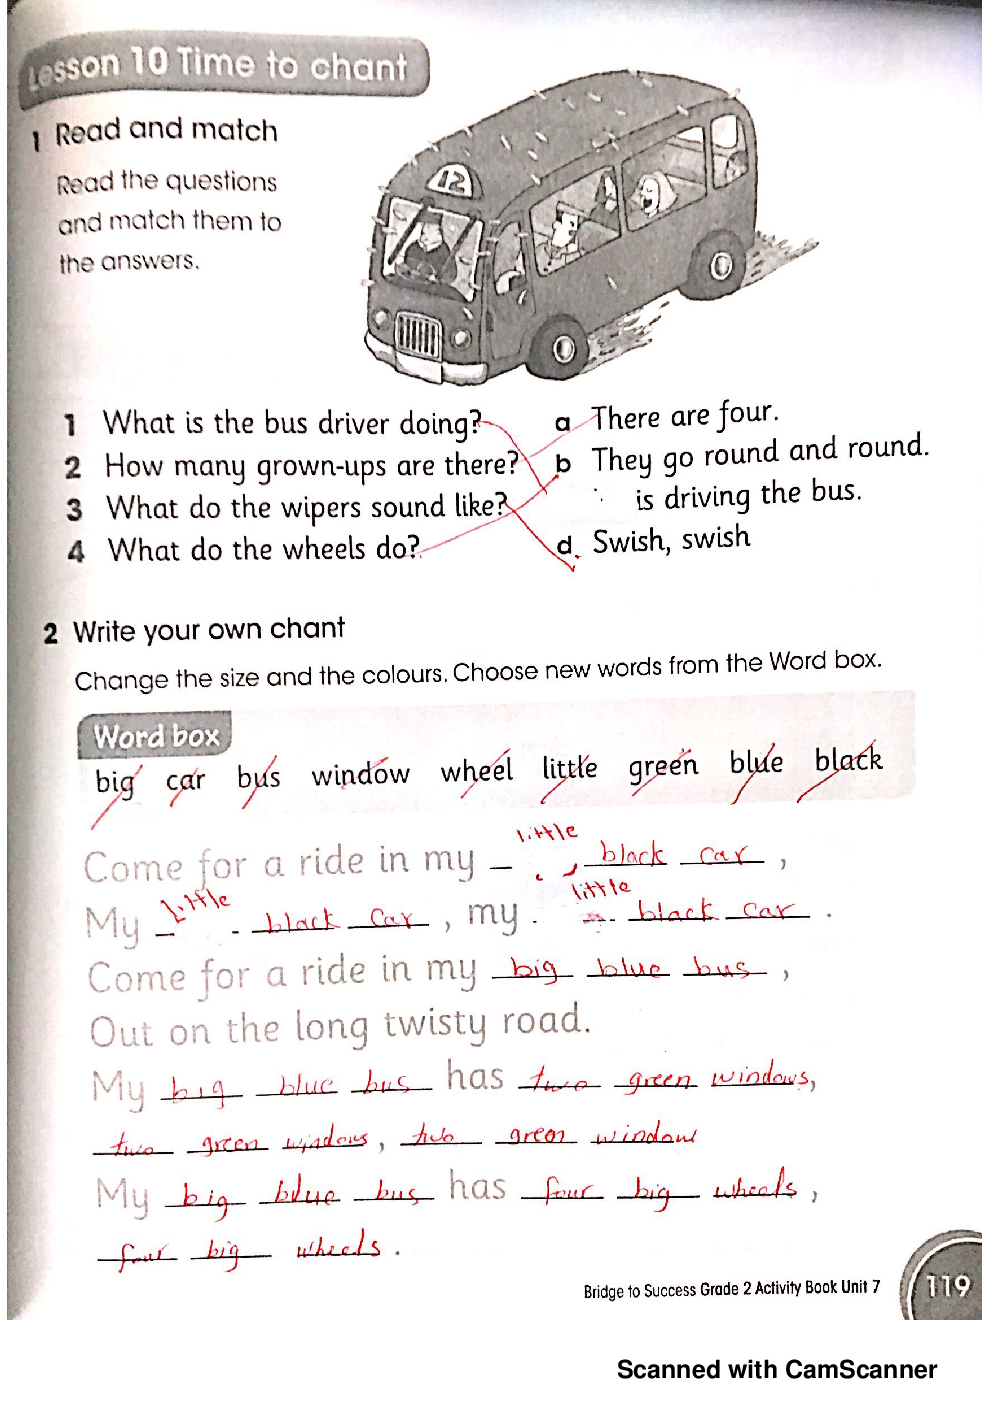 Lesson 10 Time to chant
1 Read and match
Read the questions
and match them to
the answers.
12
1 What is the bus driver doing?
2 How many grown-ups are there?
3 What do the wipers sound like?
4 What do the wheels do?
a There are four.
b They go round and round.
is driving the bus.
d. Swish, swish
2 Write your own chant
Change the size and the colours. Choose new words from the Word box.
Word box
big car bus window wheel little green blue black
Come for a ride in my little, black car,
My little black car, my little black car.
Come for a ride in my big blue bus,
Out on the long twisty road.
My big blue bus has two green windows,
two green windows, two green window
My big blue bus has four big wheels,
four big wheels.
Bridge to Success Grade 2 Activity Book Unit 7
119
Scanned with CamScanner